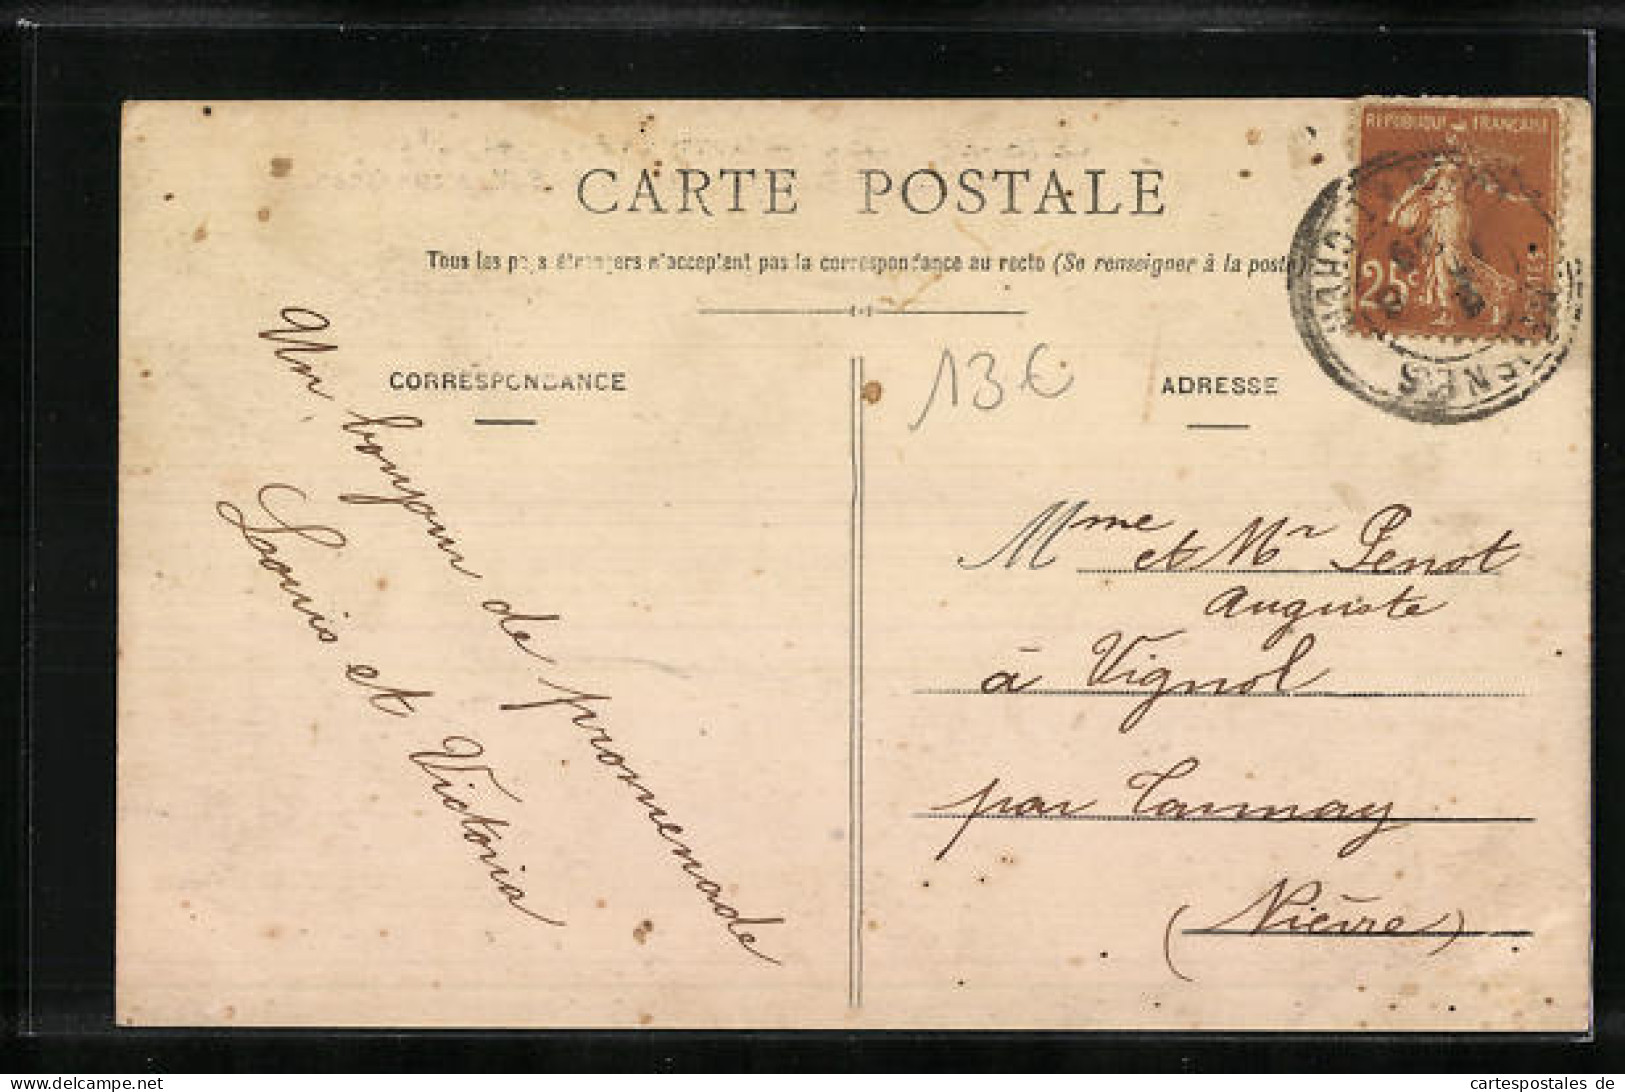 CARTE POSTALE
Tous les pays étrangers n'acceptent pas la correspondance au recto (Se renseigner à la poste)
CORRESPONDANCE
ADRESSE
13€
REPUBLIQUE FRANÇAISE
25c
Un bonjour de promenade
Louis et Victoria
Mme et Mr Penot
Auguste
à Vignol
par Tannay
(Nièvre)
cartespostales de